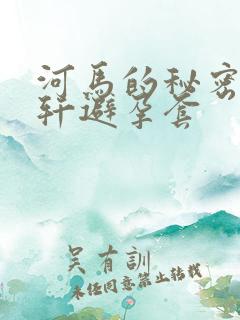 河馬的秘密
轩避孕套
吴有訓
未经同意禁止转载